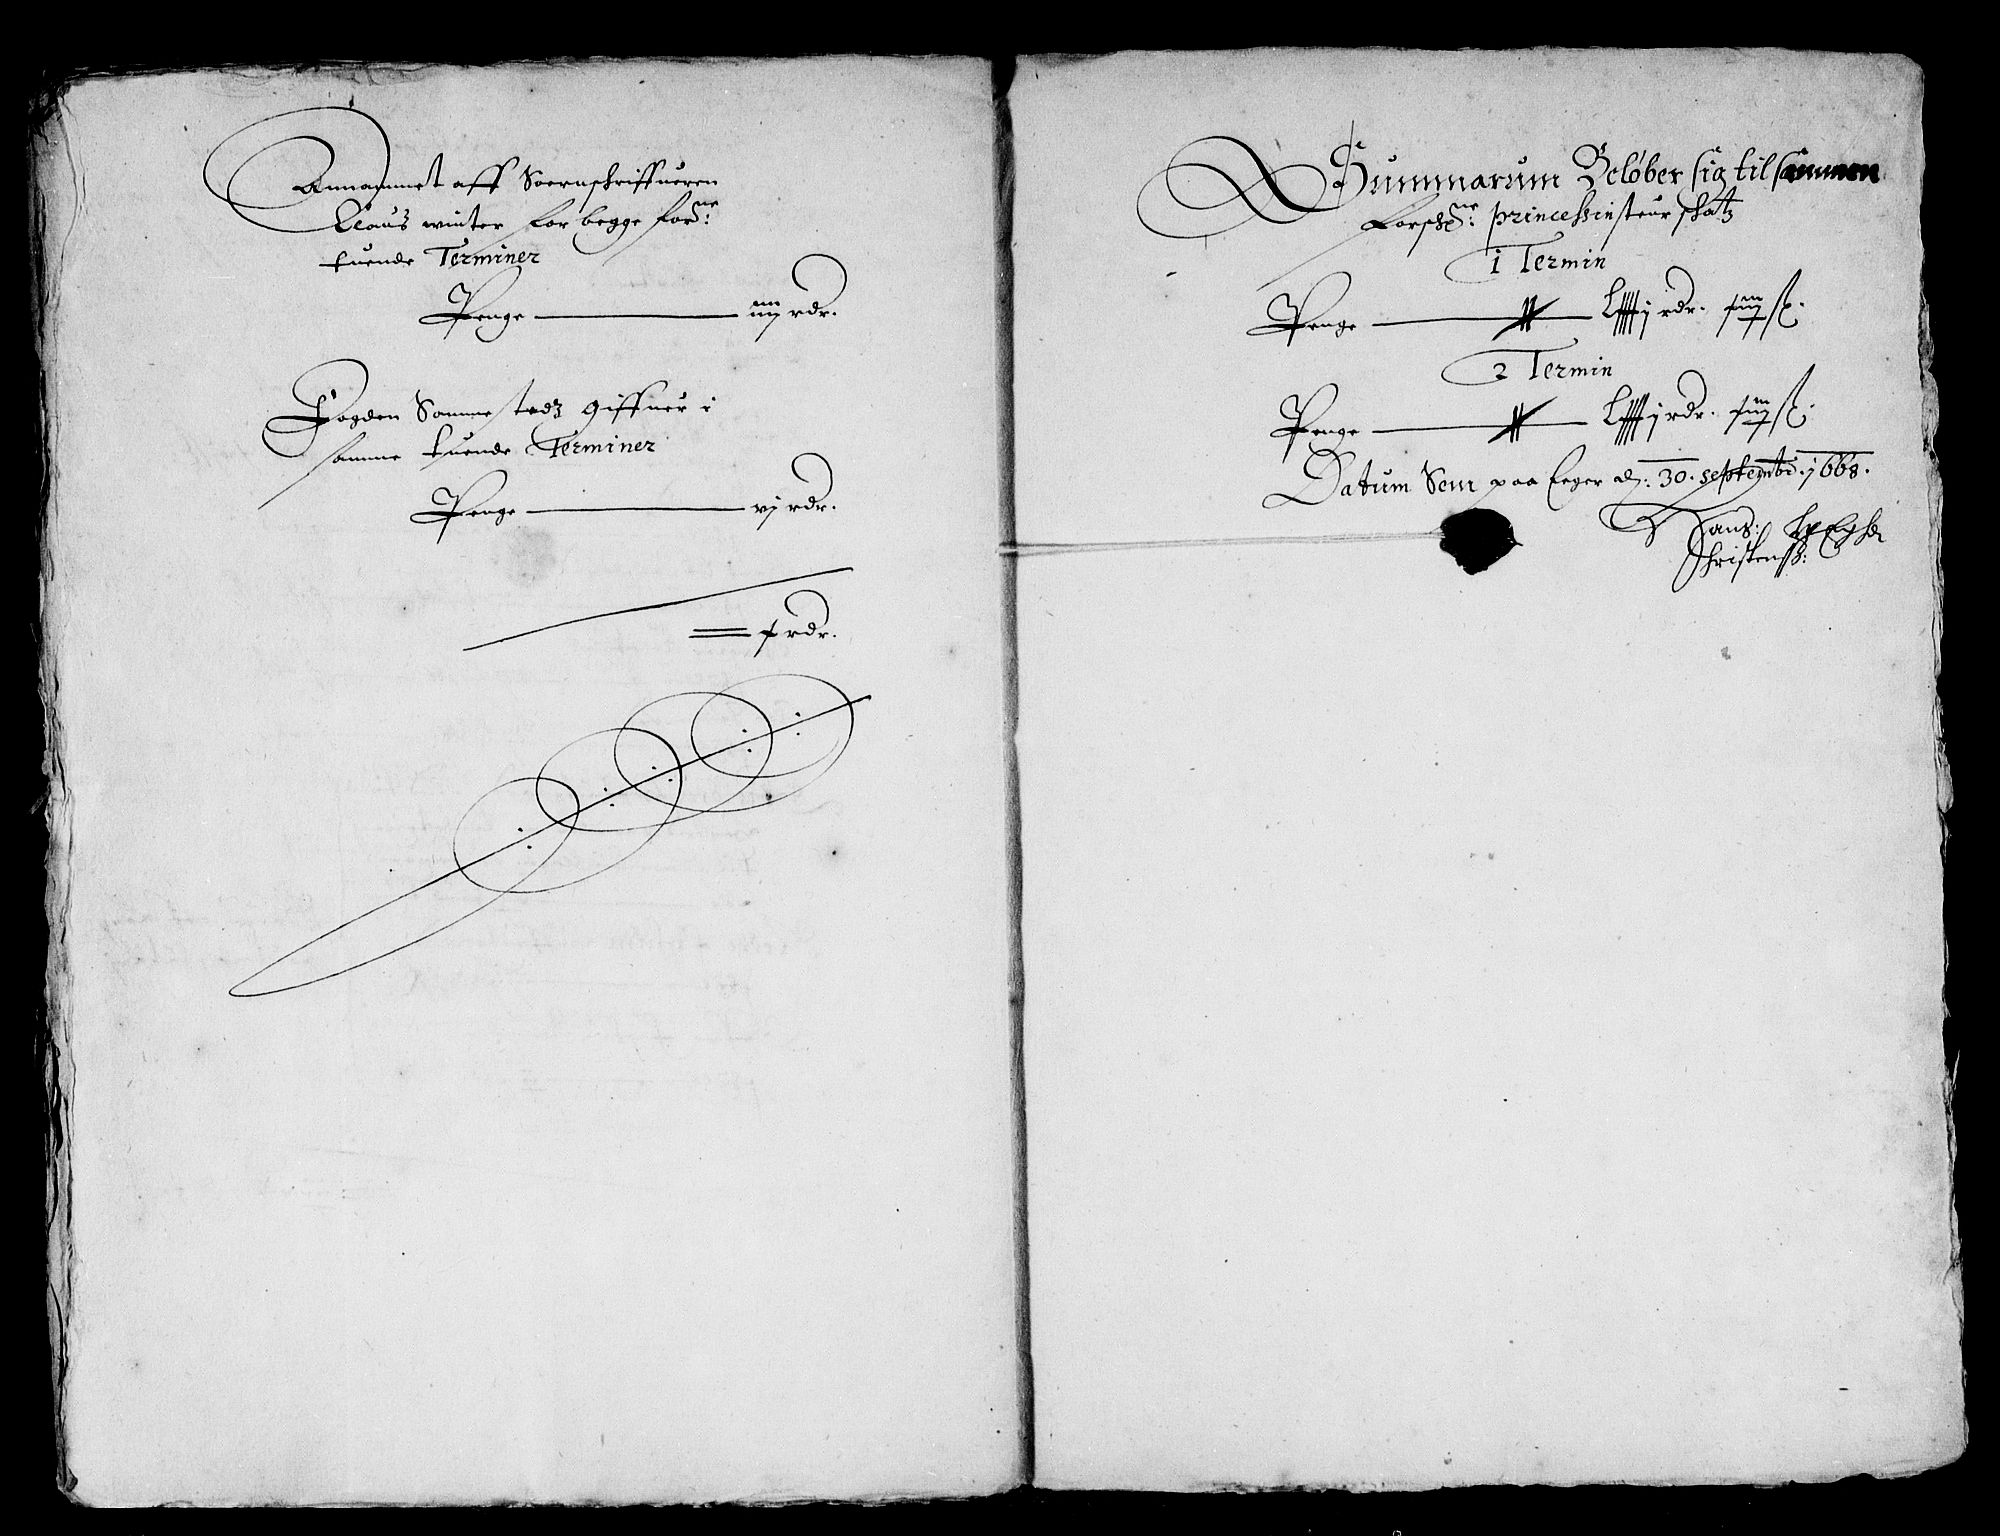 Annammet aff Soernschriffueren
Claus winter for begge forne:
tuende Terminer
Penge — iiij rdr.
Fogden Sammestedz Giffuer i
samme tuende Terminer
Penge — vj rdr.
x rdr.
Summarum Beløber sig tilsammen
forschne: princessinsteur schatz
1 Termin
Penge — rdr.
2 Termin
Penge — rdr.
Datum Sem paa Eeger dn: 30. septembr. 1668.
Hans:
Christenss: